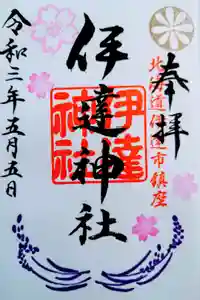 奉拝
北海道伊達市鎮座
伊達神社
伊達神社
令和三年五月五日